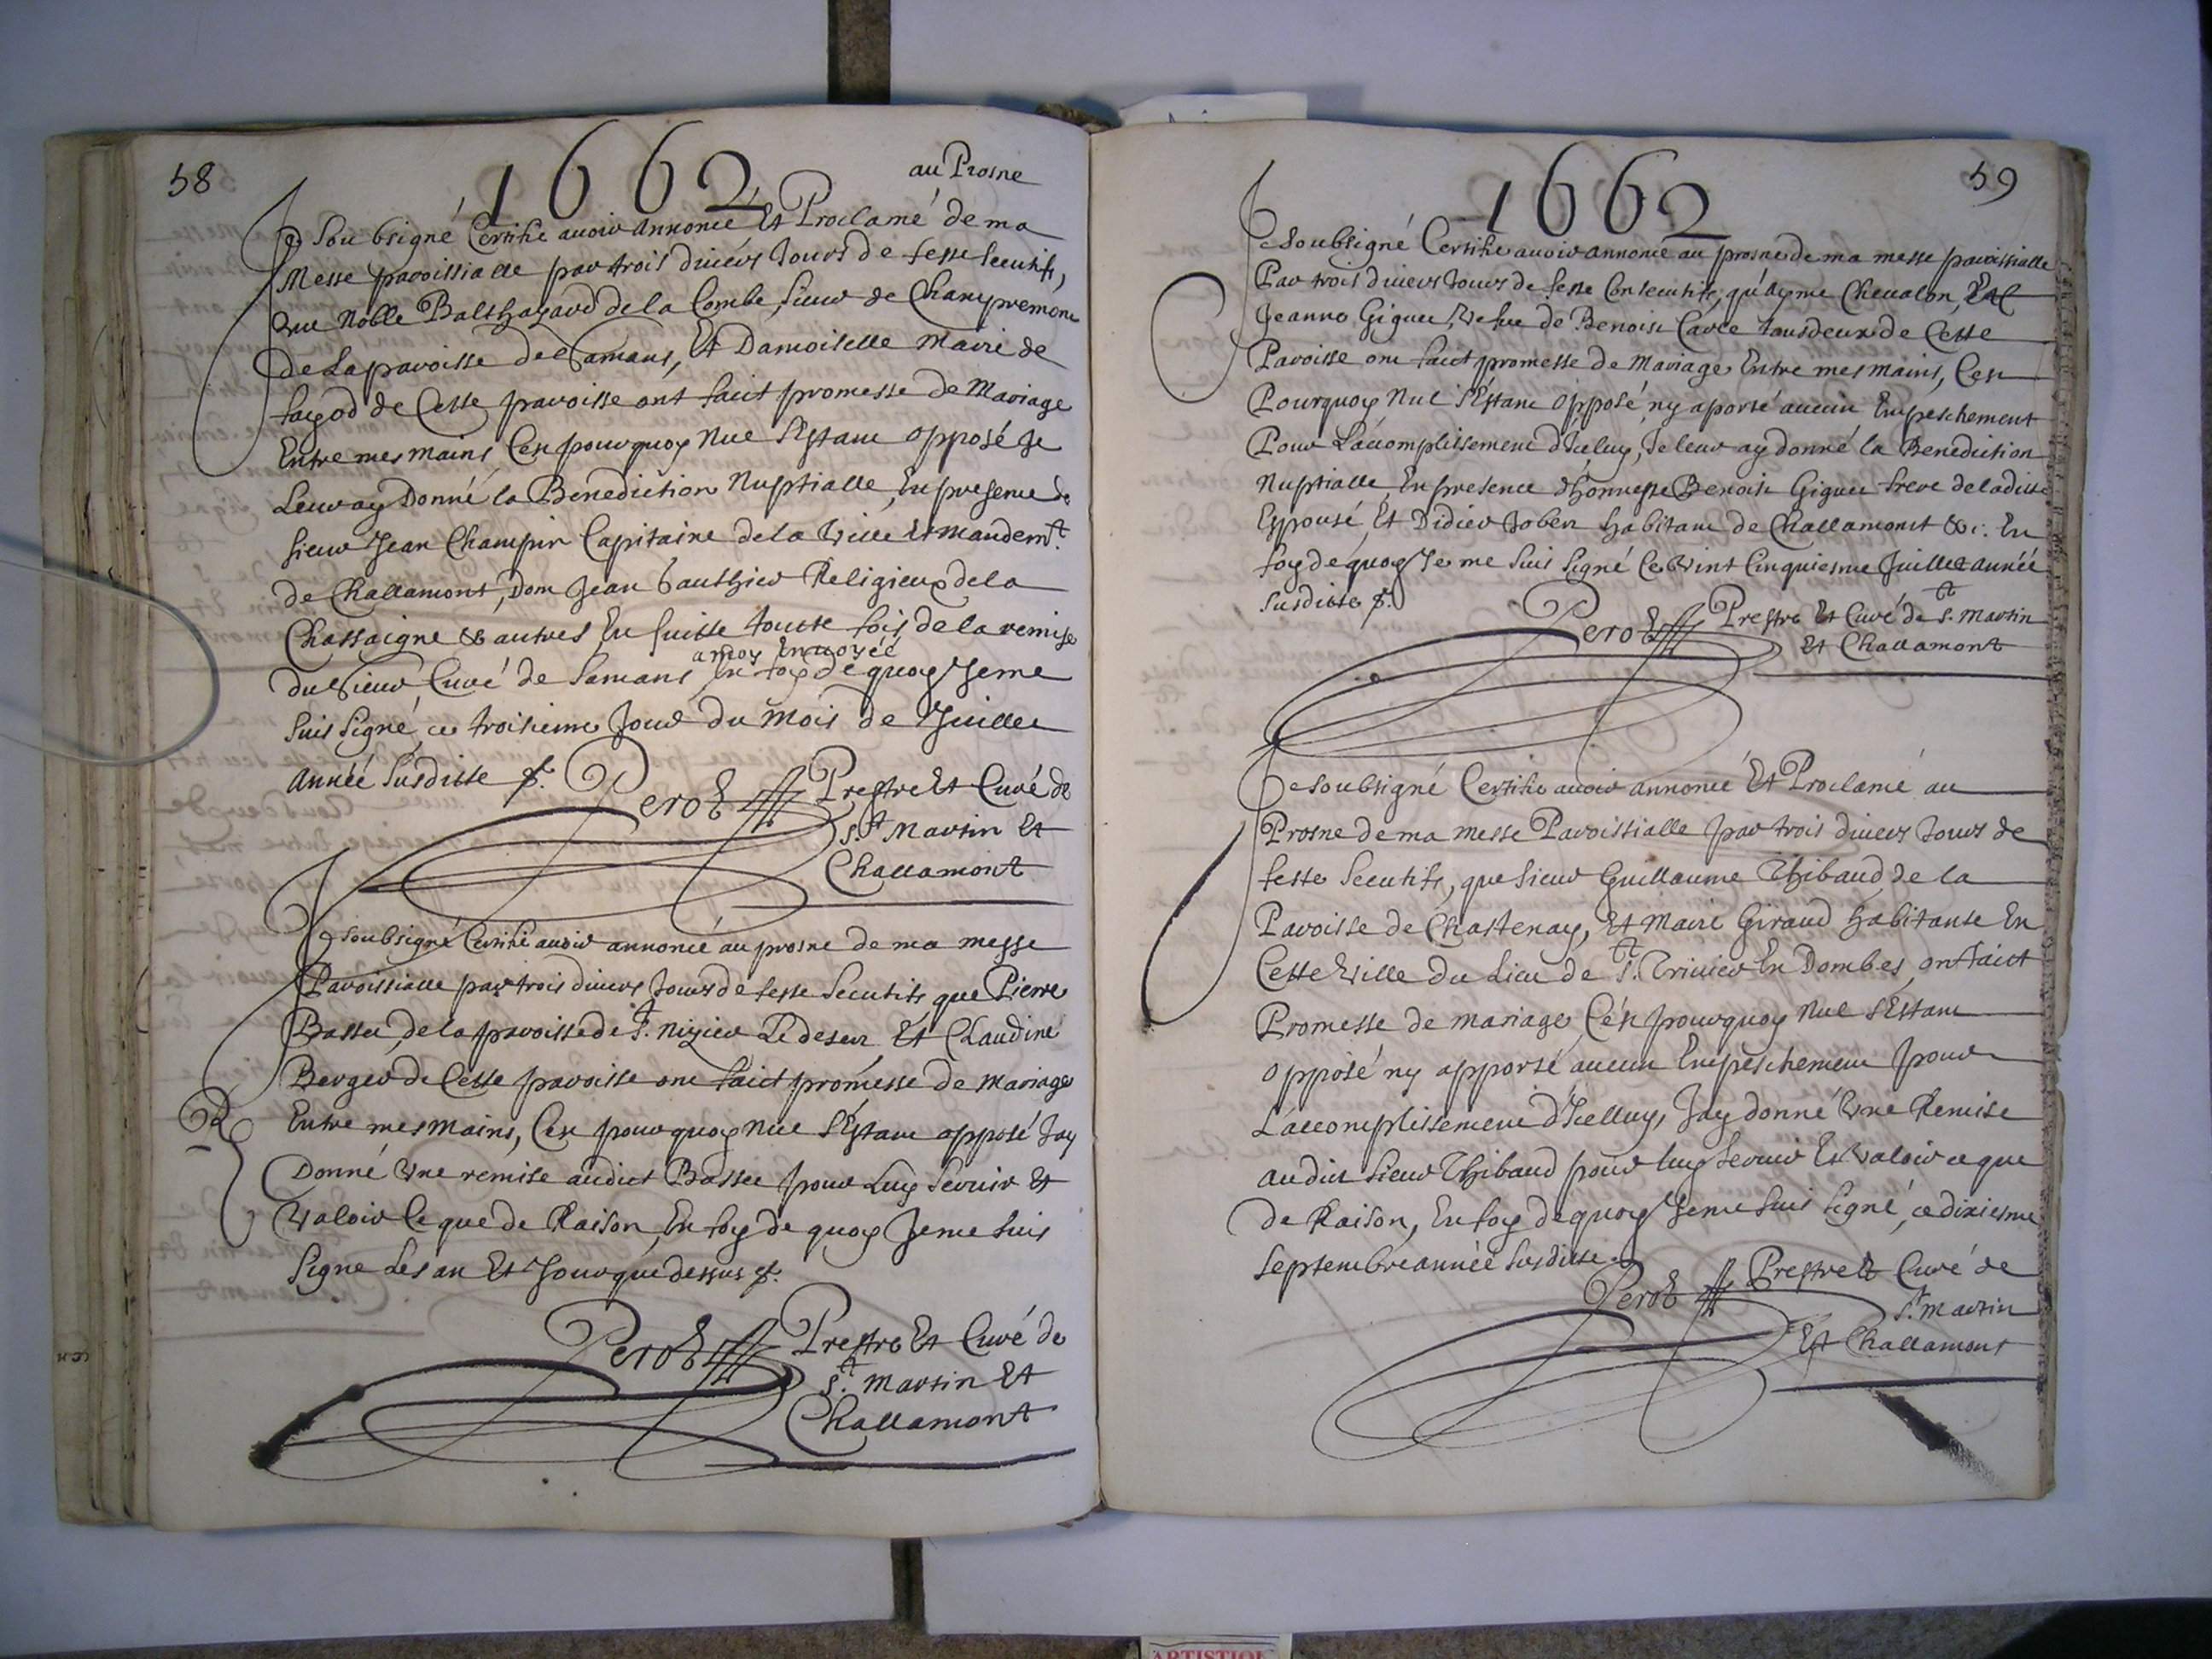 58
1662
au Prosne
Je Soubsigné Certifie avoir annoncé Et Proclamé de ma
Messe paroissialle par trois divers Jours de feste secutifs,
que Noble Balthazard de la Combe, sieur de Champremont
de La paroisse de Samans, Et Damoiselle Marie de
fayod de Cette paroisse ont faict promesse de Mariage
Entre mes mains Cest pourquoy Nul s'Estant opposé Je
Leur ay Donné la Benediction Nuptialle, En presence de
sieur Jean Champin Capitaine de la ville et mandemt.
de Challamont, Dom Jean Gauthier Religieux de la
Chassaigne & autres En suitte toutte fois de la remise
a moy Envoyée
du sieur Curé de Samans En foy de quoy Je me
suis signé, ce troisieme Jour du Mois de Juillet
année susditte
Perot Prestre Et Curé de
St. Martin Et
Challamont
Je soubsigné Certifie avoir annoncé au prosne de ma messe
Paroissialle par trois divers Jours de feste secutifs que Pierre
Basset de la paroisse de St. Nizier Le desert Et Claudine
Berger de Cette paroisse ont faict promesse de mariage
Entre mes mains, Cest pourquoy Nul s'Estant opposé Jay
R
Donné Une remise audict Basset pour Luy servir Et
Valoir Ce que de Raison, En foy de quoy Je me suis
signé Les an Et Jour que dessus
Perot Prestre Et Curé de
St. Martin Et
Challamont
1662
59
Je Soubsigné Certifie avoir annoncé au prosne de ma messe paroissialle
Par trois divers Jours de feste Consecutifs, qu'Ayme Chevalon, Et
Jeanne Giguet, Vefve de Benoist Cavée tous deux de Cette
Paroisse ont faict promesse de Mariage Entre mes mains, Cest
Pourquoy Nul s'Estant Opposé ny aporté aucun Empeschement
Pour L'acomplissement d'Iceluy, Je leur ay donné la Benediction
Nuptialle, En presence d'honneste Benoist Giguet frere de laditte
Espouse, Et Didier Jobert habitant de Challamont &c. En
foy de quoy Je me suis signé Ce Vint Cinquiesme Juillet année
susditte
Perot Prestre Et Curé de St. Martin
Et Challamont
Je soubsigné Certifie avoir annoncé Et Proclamé au
Prosne de ma messe Paroissialle par trois divers Jours de
feste secutifs, que sieur Guillaume Thibaud de la
Paroisse de Chastenay, Et Marie Giraud habitante En
Cette Ville du Lieu de St. Trivier En Dombes, ont faict
Promesse de mariage Cest pourquoy Nul s'Estant
opposé ny apporté aucun Empeschement pour
L'accomplissement d'Icelluy, Jay donné Une Remise
au dict sieur Thibaud pour luy servir Et valoir ce que
de Raison, En foy de quoy Je me suis signé, ce dixiesme
septembre année susditte.
Perot Prestre Et Curé de
St. Martin
Et Challamont